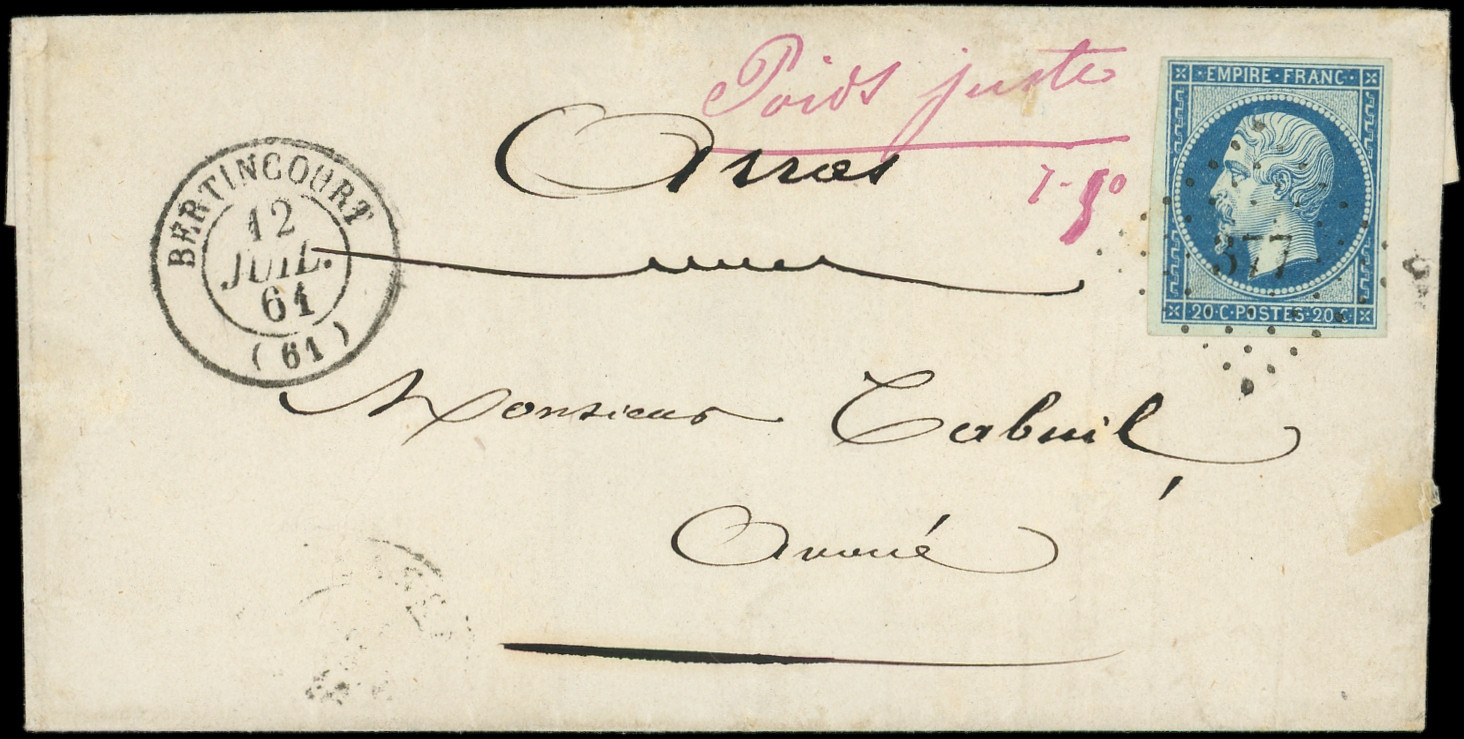 Poids juste
7-50
Arras
EMPIRE · FRANC ·
377
20 C · POSTES · 20 C
BERTINCOURT
12
JUIL.
61
(61)
Monsieur Cabuil,
Avoué